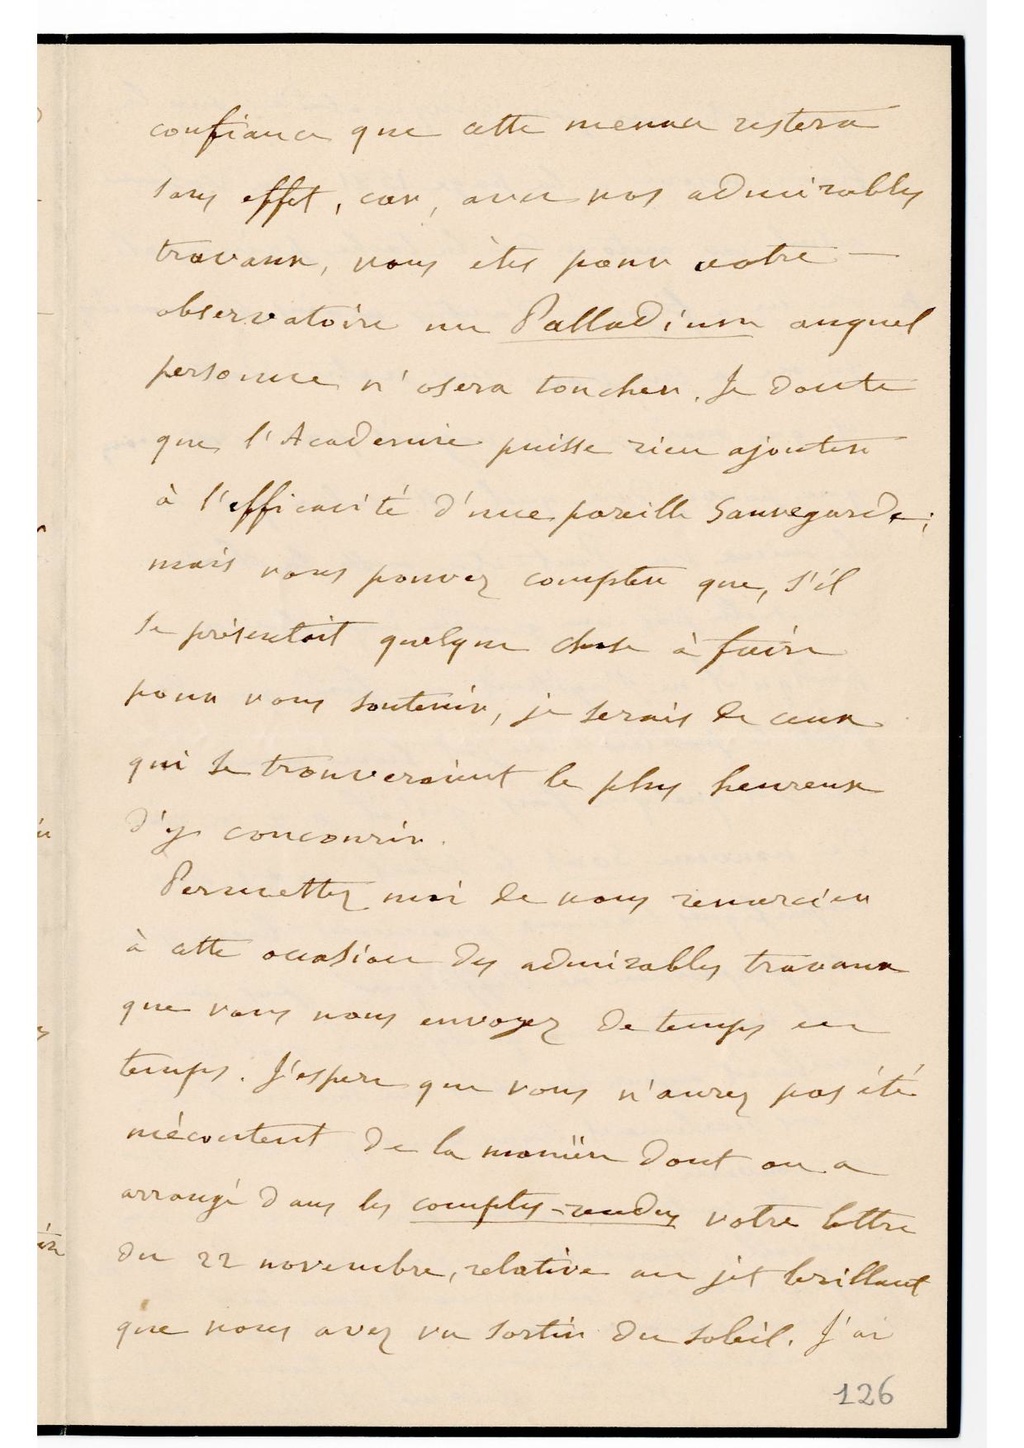 confiance que cette menace restera
sans effet, car, avec vos admirables
travaux, vous êtes pour votre —
observatoire un Palladium auquel
personne n'osera toucher. Je doute
que l'Academie puisse rien ajouter
à l'efficacité d'une pareille sauvegarde;
mais vous pouvez compter que, s'il
se présentait quelque chose à faire
pour vous soutenir, je serais de ceux
qui se trouveraient le plus heureux
d'y concourir.
Permettez moi de vous remercier
à cette occasion des admirables travaux
que vous nous envoyez de temps en
temps. J'espere que vous n'aurez pas été
mécontent de la manière dont on a
arrangé dans les comptes-rendus votre lettre
du 22 novembre, relative au jet brillant
que vous avez vu sortir du soleil. J'ai
126